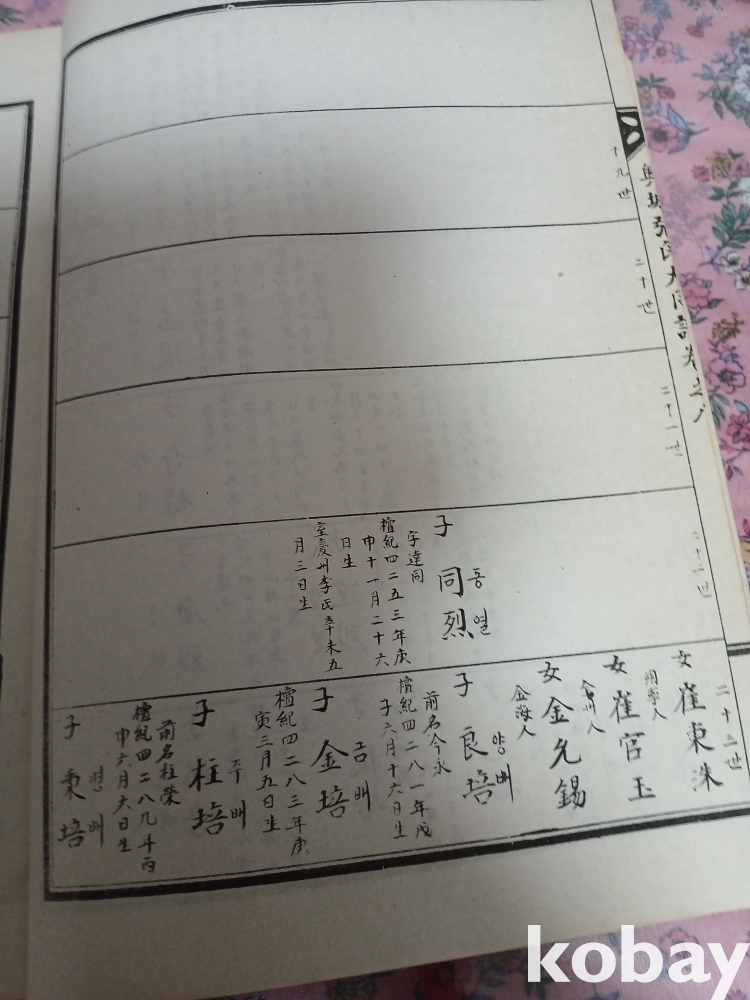 張氏大同譜卷之八
十九世
二十世
二十一世
二十二世
子
同烈
동열
字達同
檀紀四二五三年庚
申十一月二十六
日生
室慶州李氏辛未五
月三日生
二十三世
女
崔東洙
女
崔官玉
女
金允錫
金海人
子
良培
양배
前名今永
檀紀四二八一年戊
子六月十六日生
子
金培
금배
檀紀四二八三年庚
寅三月五日生
子
柱培
주배
前名柱榮
檀紀四二八九年丙
申六月六日生
子
秉培
병배
kobay